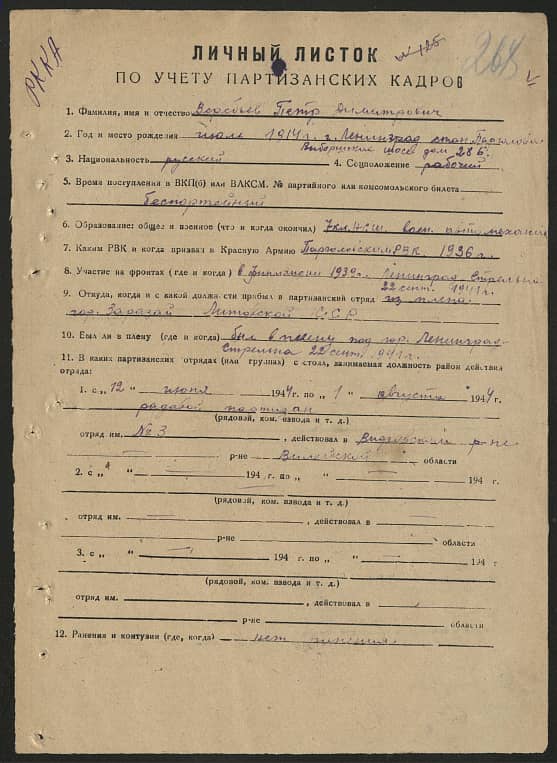 РККА
№ 125
268
ЛИЧНЫЙ ЛИСТОК
ПО УЧЕТУ ПАРТИЗАНСКИХ КАДРОВ
1. Фамилия, имя и отчество Воробьев Петр Димитрович
2. Год и место рождения июль 1914 г. г. Ленинград стан. Парголово
Выборгское шосе дом 28 б.
3. Национальность русский 4. Соцположение рабочий
5. Время поступления в ВКП(б) или ВЛКСМ. № партийного или комсомольского билета
беспартейный
6. Образование: общее и военное (что и когда окончил) 7 кл. НСШ. воен. автомеханик
7. Каким РВК и когда призван в Красную Армию Парголовском РВК. 1936 г.
8. Участие на фронтах (где и когда) в финляндии 1939 г. Ленинград Стрельна
22 сент. 1941 г.
9. Откуда, когда и с какой должности прибыл в партизанский отряд из плена
гор. Зарасай Литовской ССР
10. Был ли в плену (где и когда) был в плену под гор. Ленинград-
Стрелна 22 сент. 1941 г.
11. В каких партизанских отрядах (или группах) с стола, занимаемая должность район действия
отряда:
1. с „12 “ июня 1944 г. по „ 1 “ августа 1944 г.
рядовой партизан
(рядовой, ком. взвода и т. д.)
отряд им. № 3 , действовал в Видзовский р-не
р-не Вилейской области
2. с „ “ 194 г. по „ “ 194 г.
(рядовэй, ком. взвода и т. д.)
отряд им. , действовал в
р-не области
3. с „ “ 194 г. по „ “ 194 г
(рядовой, ком. взвода и т. д.)
отряд им. , действовал в
р-не области
12. Ранения и контузии (где, когда) нет ранения